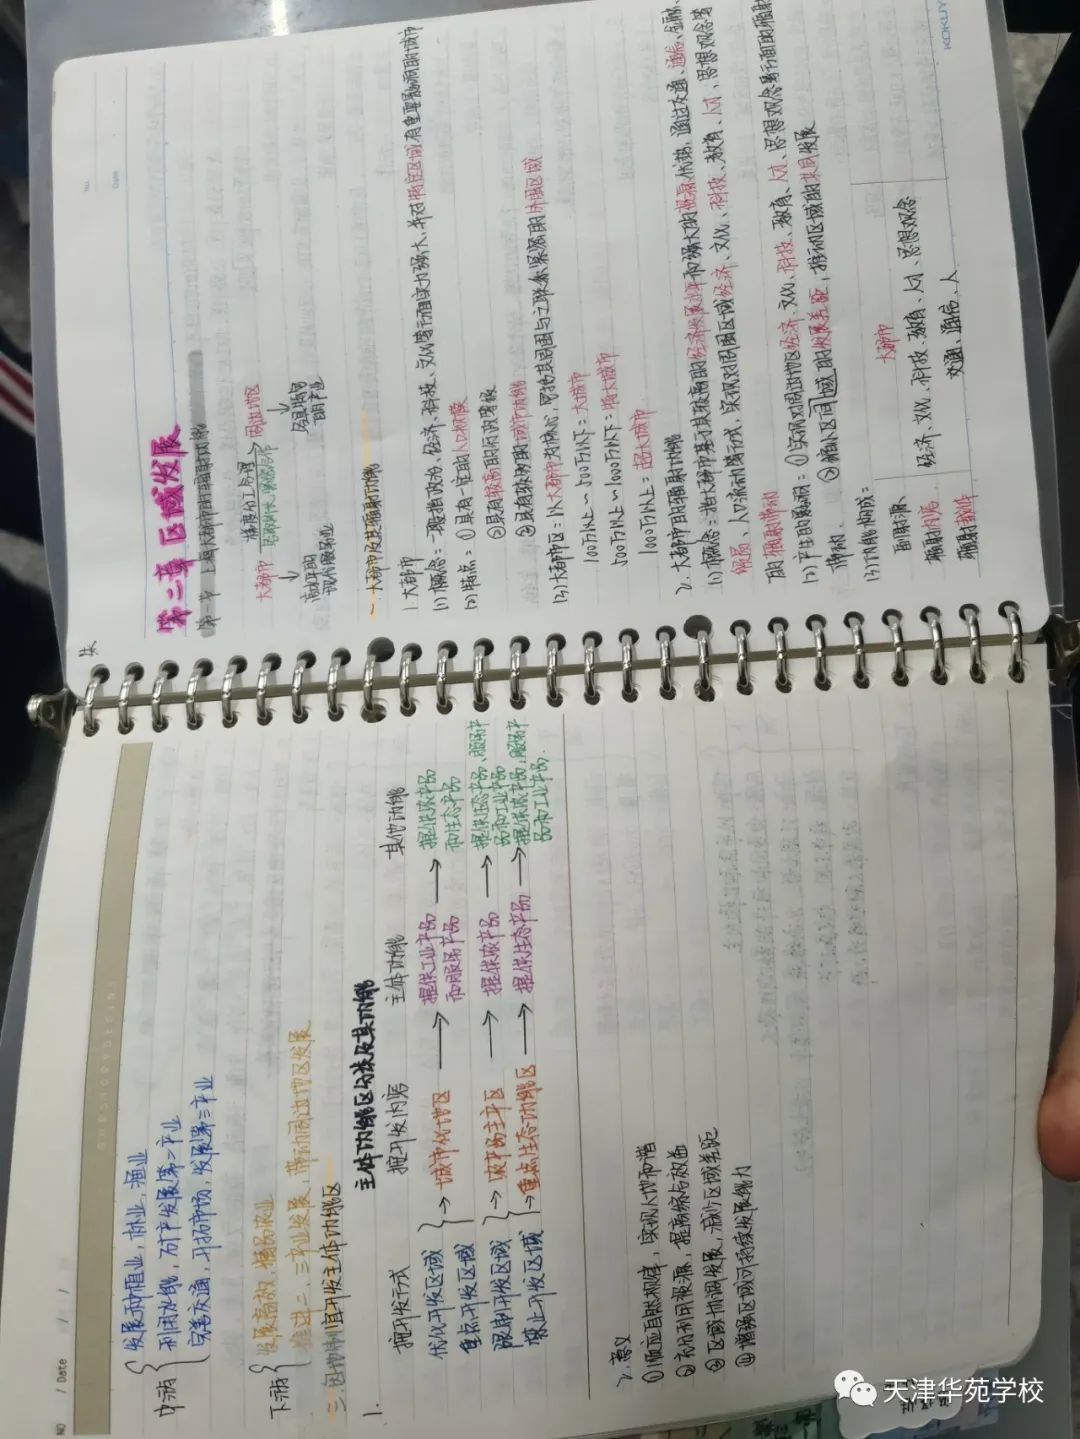 NO
/ Date / /
中游
发展种植业，林业，渔业
利用水能，矿产发展第二产业
完善交通，开拓市场，发展第三产业
下游
发展高效，精品农业
推进二、三产业发展，带动周边地区发展
三.因地制宜开发主体功能区
1.
主体功能区分类及其功能
按开发方式 按开发内容 主体功能 其他功能
优化开发区域
重点开发区域
→城市化地区→提供工业产品和服务产品→提供农产品和生态产品
限制开发区域→农产品主产区→提供农产品→提供生态产品、服务产品和工业产品
禁止开发区域→重点生态功能区→提供生态产品→提供农产品，服务产品和工业产品.
2.意义
①顺应自然规律，实现人地和谐
②充分利用资源，提高综合效益
③区域协调发展，减少区域差距
④增强区域可持续发展能力
朱
No.
Date
第二章 区域发展
第一节 大都市的辐射功能
大都市 周边地区
高水平的
现代服务业
一.大都市及其辐射功能
1.大都市
(1)概念：一般指政治、经济、科技、文化等方面实力强大、并对特定区域有重要影响的城市
(2)特点：①具有一定的人口规模
②具有较高的
③具有较强的城市功能
(3)大都市区：以大都市为核心，同与其周围与之联系紧密的外围区域
100万以上~500万以下：大城市
500万以上~1000万以下：特大城市
1000万以上：超大城市
2.大都市的辐射功能
(1)概念：指大都市基于其较高的经济发展水平和强大的资源优势，通过交通、通信、金融、
贸易、人口流动等方式，实现对周围区域经济、文化、科技、教育、人才、思想观念等
的辐射带动
(2)产生的影响：①实现对周边地区经济、文化、科技、教育、人才、思想观念等方面的辐射
带动.
②缩小区间域的发展差距，推动区域的共同发展
(3)功能构成：
辐射源 大都市
辐射内容 经济、文化、科技、教育、人才、思想观念
辐射媒介 交通、通信、人
KOKUYO
天津华苑学校